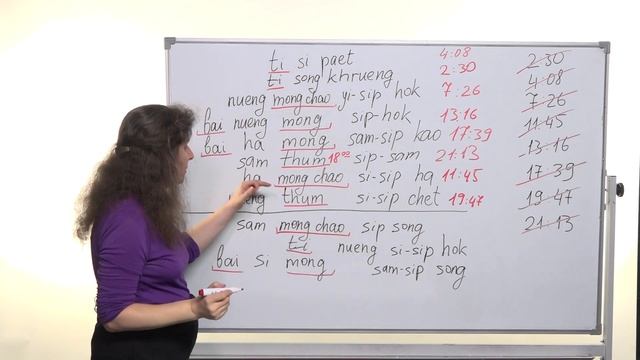 ti si paet 4:08 2 30
ti song khrueng 2:30 4 08
nueng mong chao yi-sip hok 7:26 7 26
bai nueng mong sip-hok 13:16 11:45
bai ha mong sam-sip kao 17:39 13-16
sam thum 18 00 sip-sam 21:13 17 39
ha mong chao si-sip ha 11:45 19 47
thum si-sip chet 19:47 21:13
sam mong chao sip song
ti nueng si-sip hok
bai si mong sam-sip song